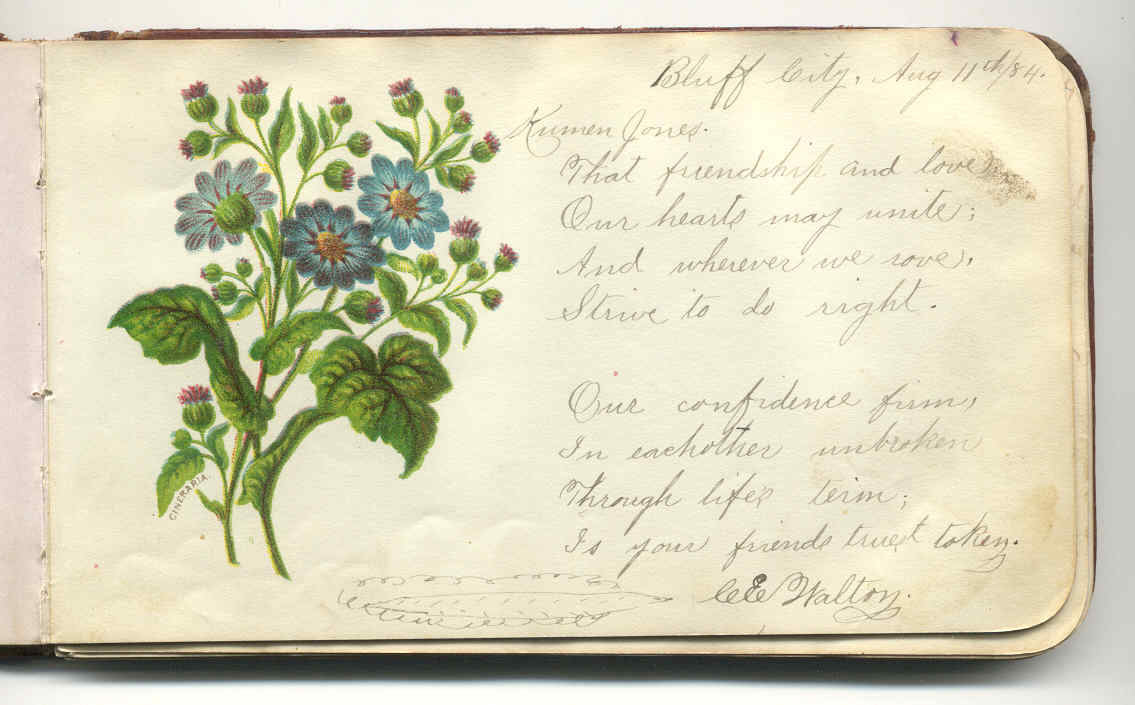 Bluff City, Aug 11th/84.
Kumen Jones.
That friendship and love,
Our hearts may unite;
And wherever we rove,
Strive to do right.
Our confidence firm,
In eachother unbroken
Through life's term;
Is your friends truest token.
CE Walton.
CINERARIA.